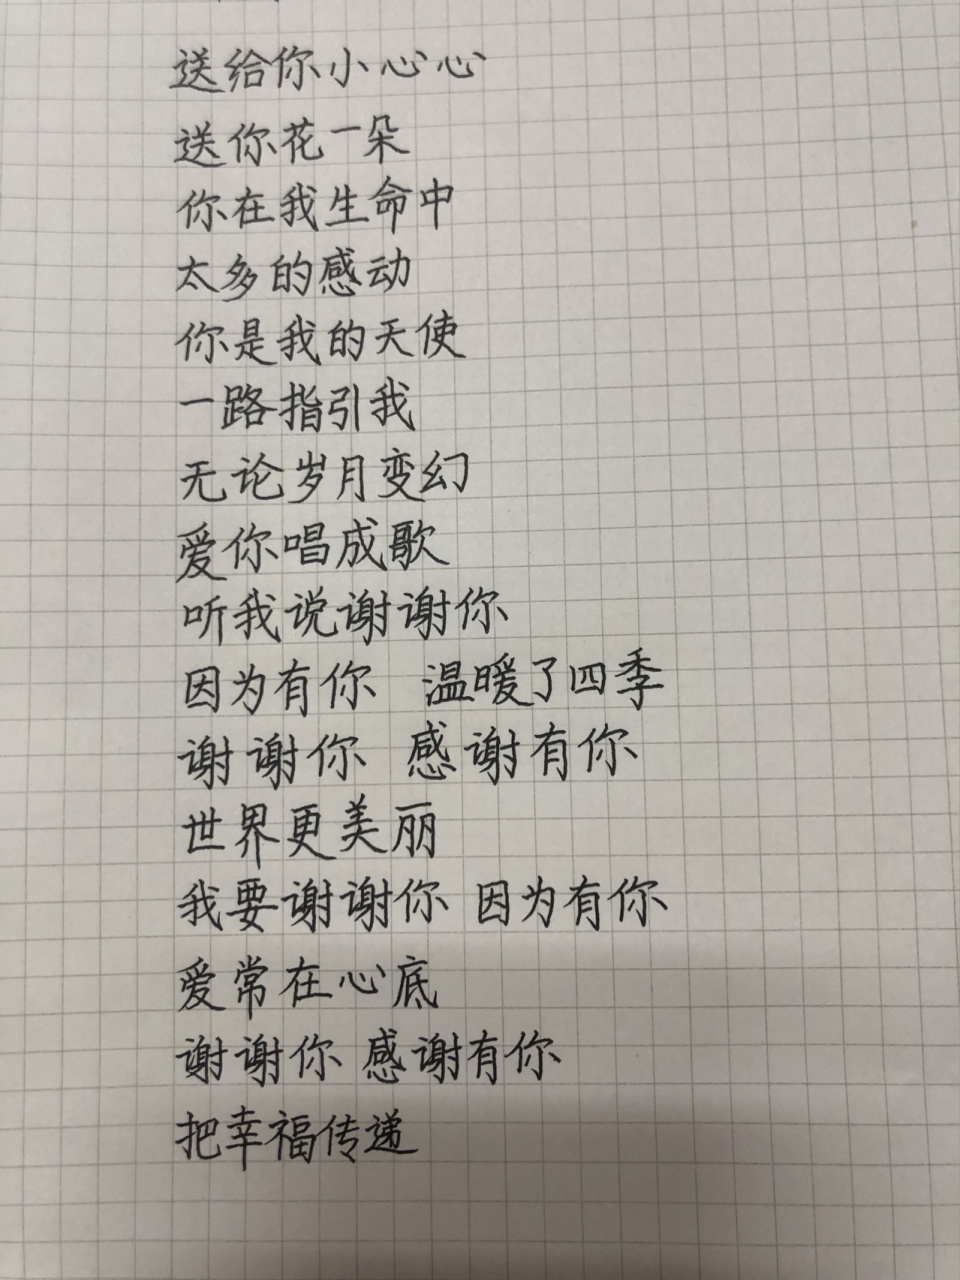 送给你小心心
送你花一朵
你在我生命中
太多的感动
你是我的天使
一路指引我
无论岁月变幻
爱你唱成歌
听我说谢谢你
因为有你 温暖了四季
谢谢你 感谢有你
世界更美丽
我要谢谢你 因为有你
爱常在心底
谢谢你 感谢有你
把幸福传递